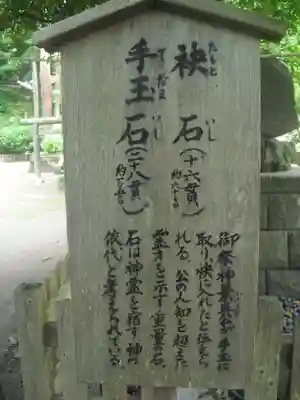 袂石(十六貫
約六十
たもといし
手玉石(二十八貫
てだまいし
御祭神景政公が手玉に
取り袂に入れたと伝えら
れる。公の人知を超えた
霊力を示す重量の石。
石は神霊を宿す神の
依代と考えられている